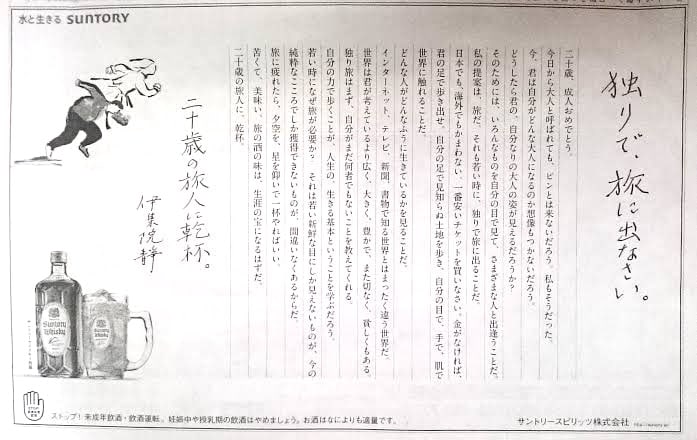 水と生きる SUNTORY
独りで、旅に出なさい。
二十歳、成人おめでとう。
今日から大人と呼ばれても、ピンとは来ないだろう。私もそうだった。
今、君は自分がどんな大人になるのか想像もつかないだろう。
どうしたら君の、自分なりの大人の姿が見えるだろうか?
そのためには、いろんなものを自分の目で見て、さまざまな人と出逢うことだ。
私の提案は、旅だ。それも若い時に、独りで旅に出ることだ。
日本でも、海外でもかまわない。一番安いチケットを買いなさい。金がなければ、
君の足で歩き出せ。自分の足で見知らぬ土地を歩き、自分の目で、手で、肌で
世界に触れることだ。
どんな人がどんなふうに生きているかを見ることだ。
インターネット、テレビ、新聞、書物で知る世界とはまったく違う世界だ。
世界は君が考えているより広く、大きく、豊かで、また切なく、貧しくもある。
独り旅はまず、自分がまだ何者でもないことを教えてくれる。
自分の力で歩くことが、人生の、生きる基本ということを学ぶだろう。
若い時になぜ旅が必要か? それは若い新鮮な目にしか見えないものが、今の
純粋なこころでしか獲得できないものが、間違いなくあるからだ。
旅に疲れたら、夕空を、星を仰いで一杯やればいい。
苦くて、美味い、旅の酒の味は、生涯の宝になるはずだ。
二十歳の旅人に、乾杯。
二十歳の旅人に乾杯。
伊集院静
Suntory
Whisky
ストップ! 未成年飲酒・飲酒運転。妊娠中や授乳期の飲酒はやめましょう。お酒はなによりも適量です。
サントリースピリッツ株式会社